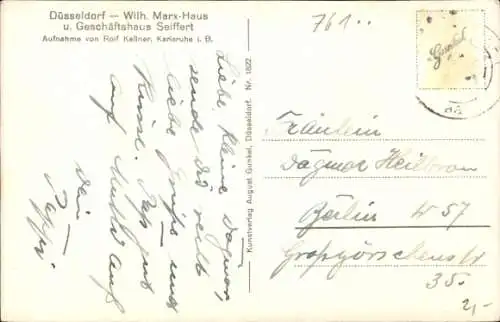 Düsseldorf — Wilh. Marx-Haus
u. Geschäftshaus Seiffert
Aufnahme von Rolf Kellner, Karlsruhe i. B.
761..
Gunkel
Liebe kleine Dagmar,
sende Dir recht
liebe Grüße und
Küsse. Pass gut
auf Mutti auf
Dein
Pappi.
Kunstverlag August Gunkel, Düsseldorf. Nr. 1822
Fräulein
Dagmar Heilbron
Berlin W 57
Großgörschenstr
35.
2,-